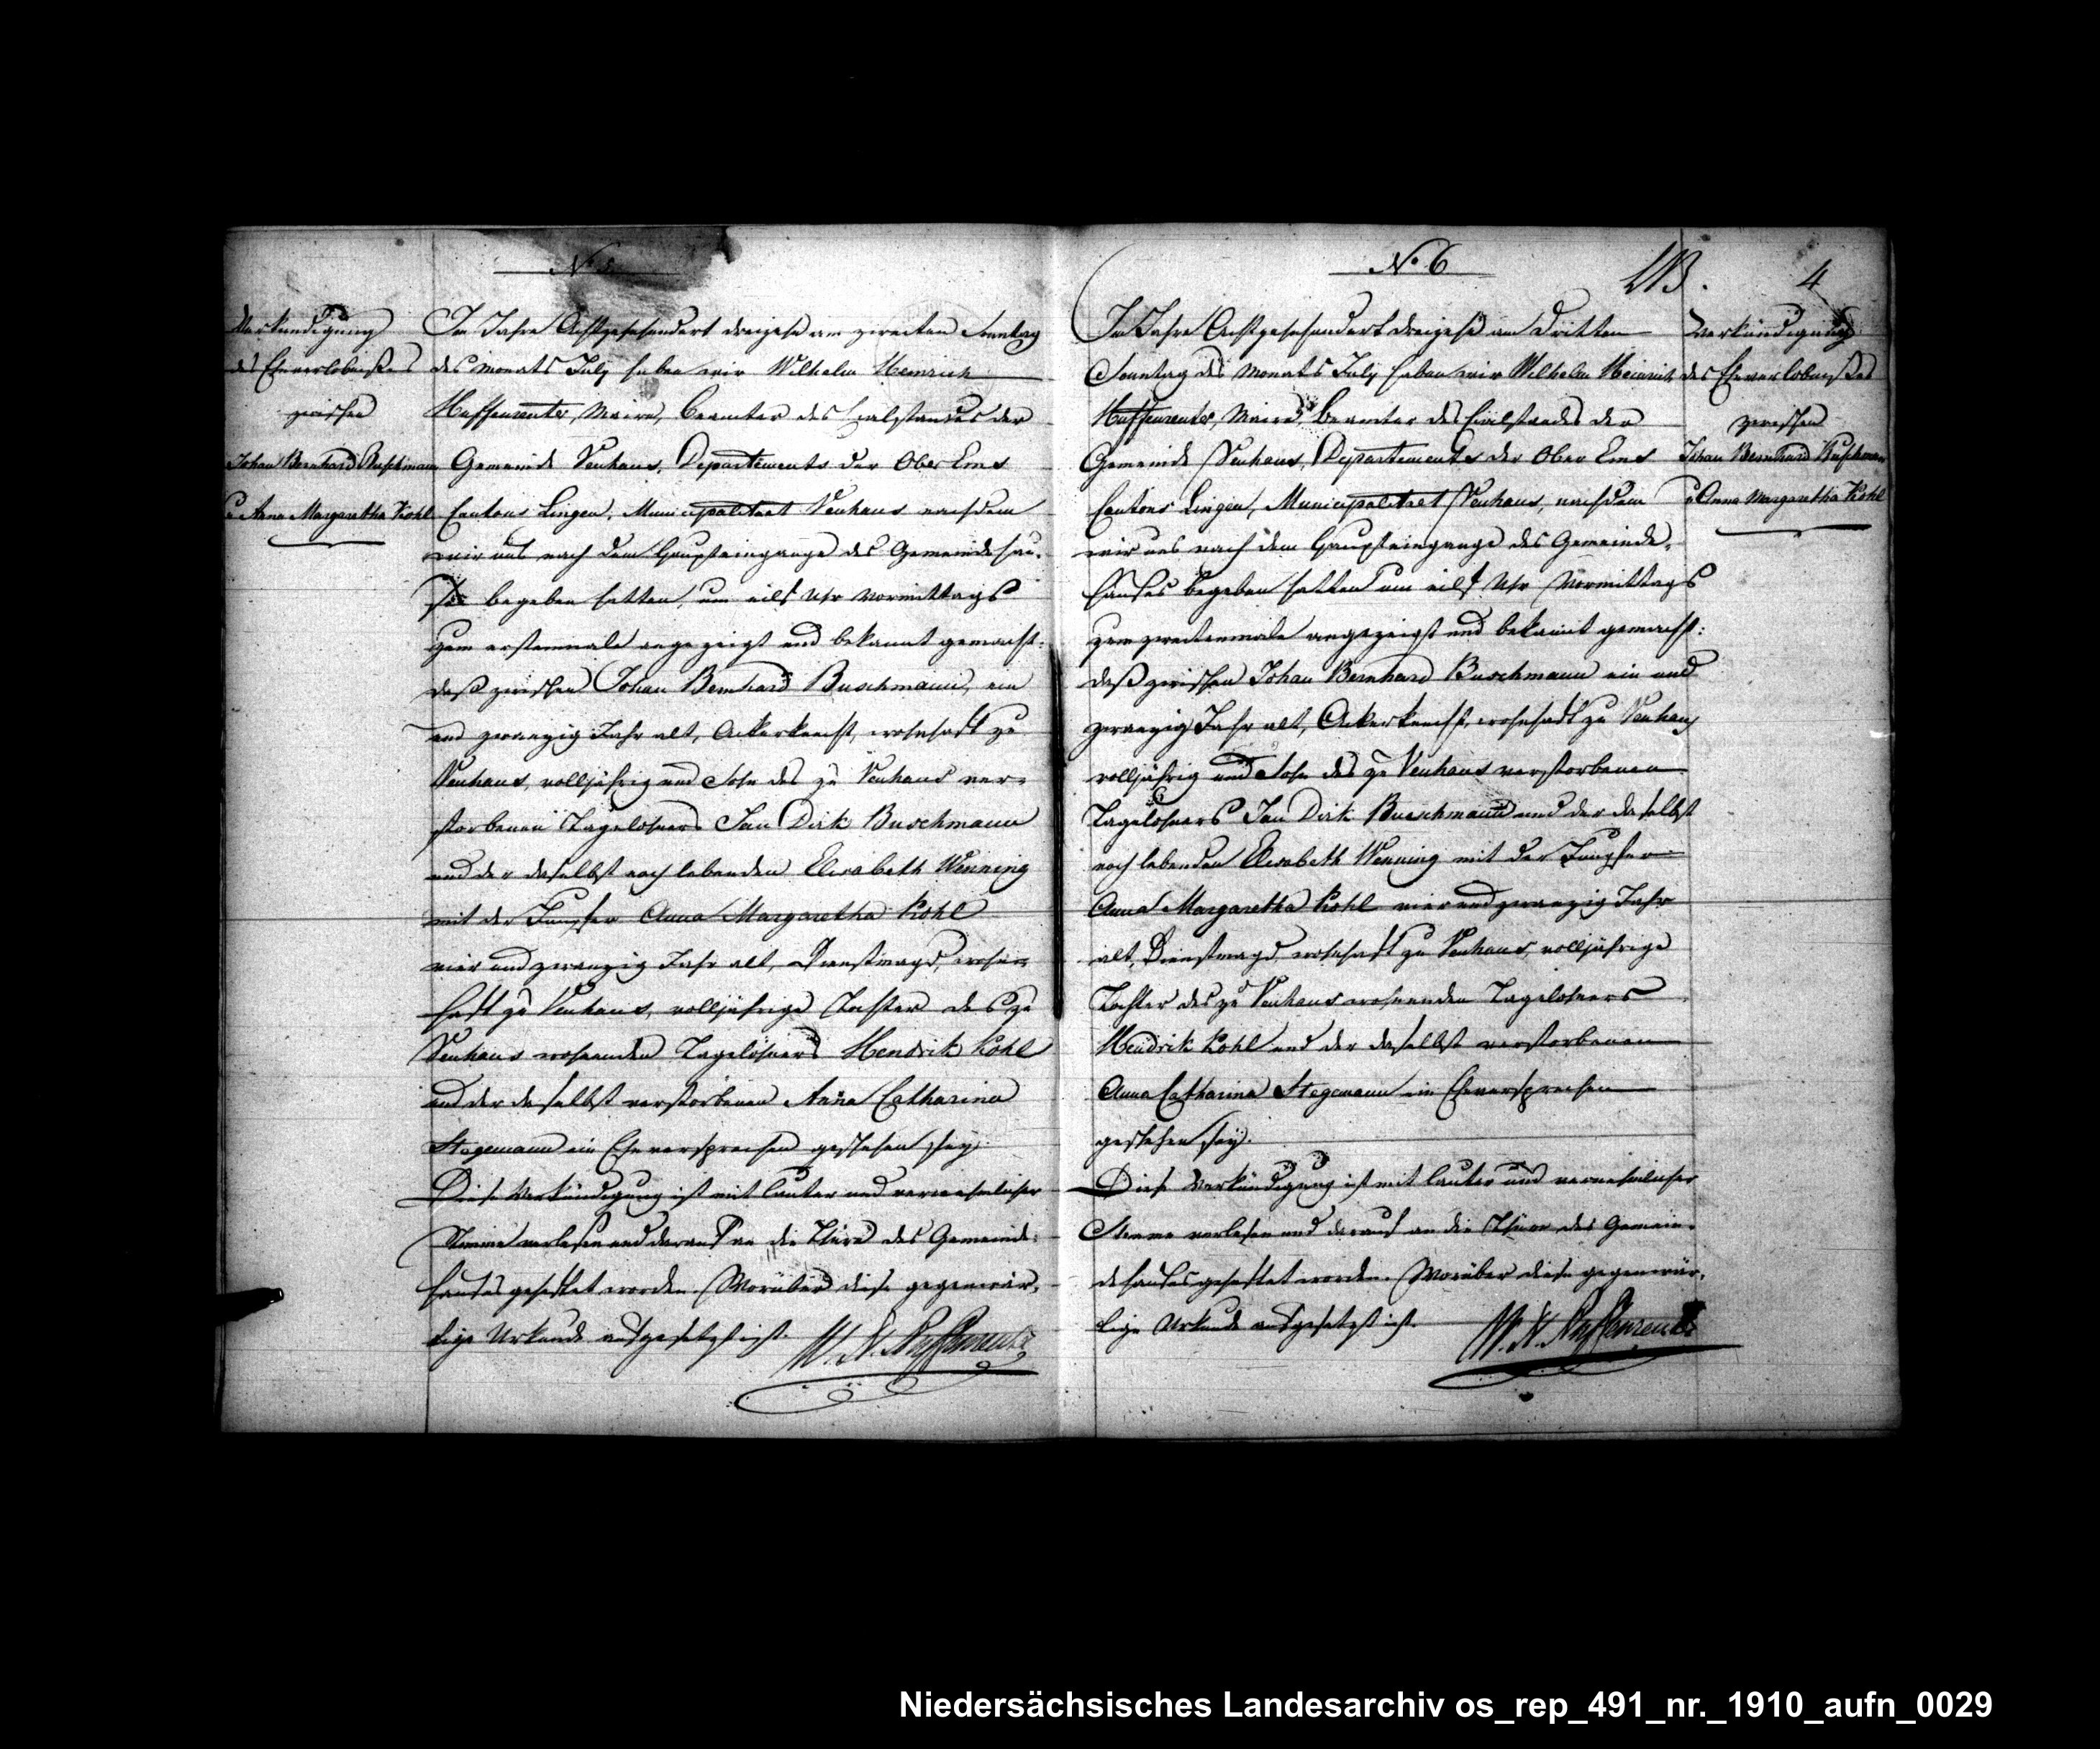 No 5.
Verkündigung
des Eheverlöbnißes
zwischen
Johan Bernhard Buschmann
u Anna Margaretha Kohl
Im Jahre Achtzehnhundert dreizehn am zweiten Sonntag
des Monats July haben wir Wilhelm Heinrich
Maire, Beamter des Civilstandes der
Gemeinde Venhaus, Departements der Ober Ems
Cantons Lingen, Municipalitaet Venhaus nachdem
wir uns nach dem Haupteingange des Gemeindehau-
ses begeben hatten, um eilf Uhr Vormittags
zum erstenmale angezeigt und bekannt gemacht:
daß zwischen Johan Bernhard Buschmann, ein
und zwanzig Jahr alt, Ackerknecht, wohnhaft zu
Venhaus, volljährig und Sohn des zu Venhaus ver-
storbenen Tagelöhners Jan Dirk Buschmann
und der daselbst noch lebenden Elisabeth Wenning
mit der Jungfer Anna Margaretha Kohl
vier und zwanzig Jahr alt, Dienstmagd, wohn-
haft zu Venhaus, volljährige Tochter des zu
Venhaus wohnenden Tagelöhners Hendrik Kohl
und der daselbst verstorbenen Anna Catharina
Stegemann ein Eheversprechen geschehen sey.
Diese Verkündigung ist mit lauter und vernehmlicher
Stimme verlesen und darauf an die Thüre des Gemeinde-
hauses geheftet worden. Worüber diese gegenwär-
tige Urkunde ausgesetzt ist. W. H.
No 6
4
Im Jahre Achtzehnhundert dreizehn am dritten
Sonntag des Monats July haben wir Wilhelm Heinrich
Maire, Beamter des Civilstandes der
Gemeinde Venhaus, Departements der Ober Ems
Cantons Lingen, Municipalitaet Venhaus, nachdem
wir uns nach dem Haupteingange des Gemeinde-
hauses begeben hatten um eilf Uhr Vormittags
zum zweitenmale angezeigt und bekannt gemacht:
daß zwischen Johan Bernhard Buschmann ein und
zwanzig Jahr alt, Ackerknecht, wohnhaft zu Venhaus
volljährig und Sohn des zu Venhaus verstorbenen
Tagelöhners Jan Dirk Buschmann und der daselbst
noch lebenden Elisabeth Wenning mit der Jungfer
Anna Margaretha Kohl vier und zwanzig Jahr
alt, Dienstmagd, wohnhaft zu Venhaus, volljährige
Tochter des zu Venhaus wohnenden Tagelöhners
Hendrik Kohl und der daselbst verstorbenen
Anna Catharina Stegemann ein Eheversprechen
geschehen sey.
Diese Verkündigung ist mit lauter und vernehmlicher
Stimme verlesen und darauf an die Thüre des Gemein-
dehauses geheftet worden. Worüber diese gegenwär-
tige Urkunde ausgesetzt ist. W. H.
Verkündigung
des Eheverlöbnißes
zwischen
Johan Bernhard Buschmann
u Anna Margaretha Kohl
Niedersächsisches Landesarchiv os_rep_491_nr._1910_aufn_0029